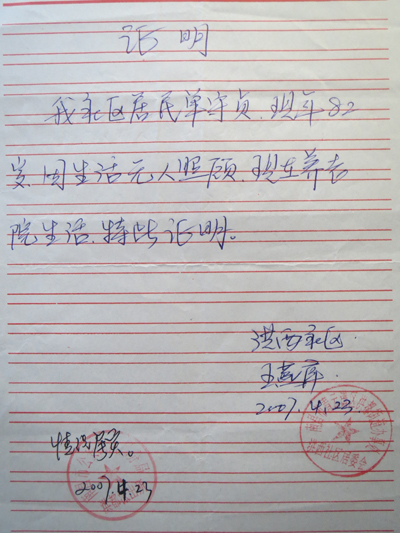 证明
我社区居民单守贞、现年82
岁、因生活无人照顾、现在养老
院生活、特此证明。
洪西社区
王燕
2007.4.23
情况属实。
2007.4.23